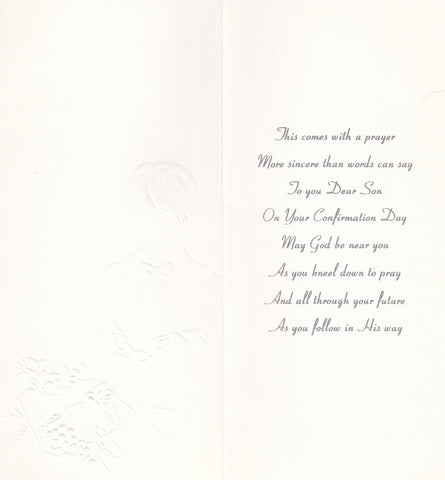 This comes with a prayer
More sincere than words can say
To you Dear Son
On Your Confirmation Day
May God be near you
As you kneel down to pray
And all through your future
As you follow in His way